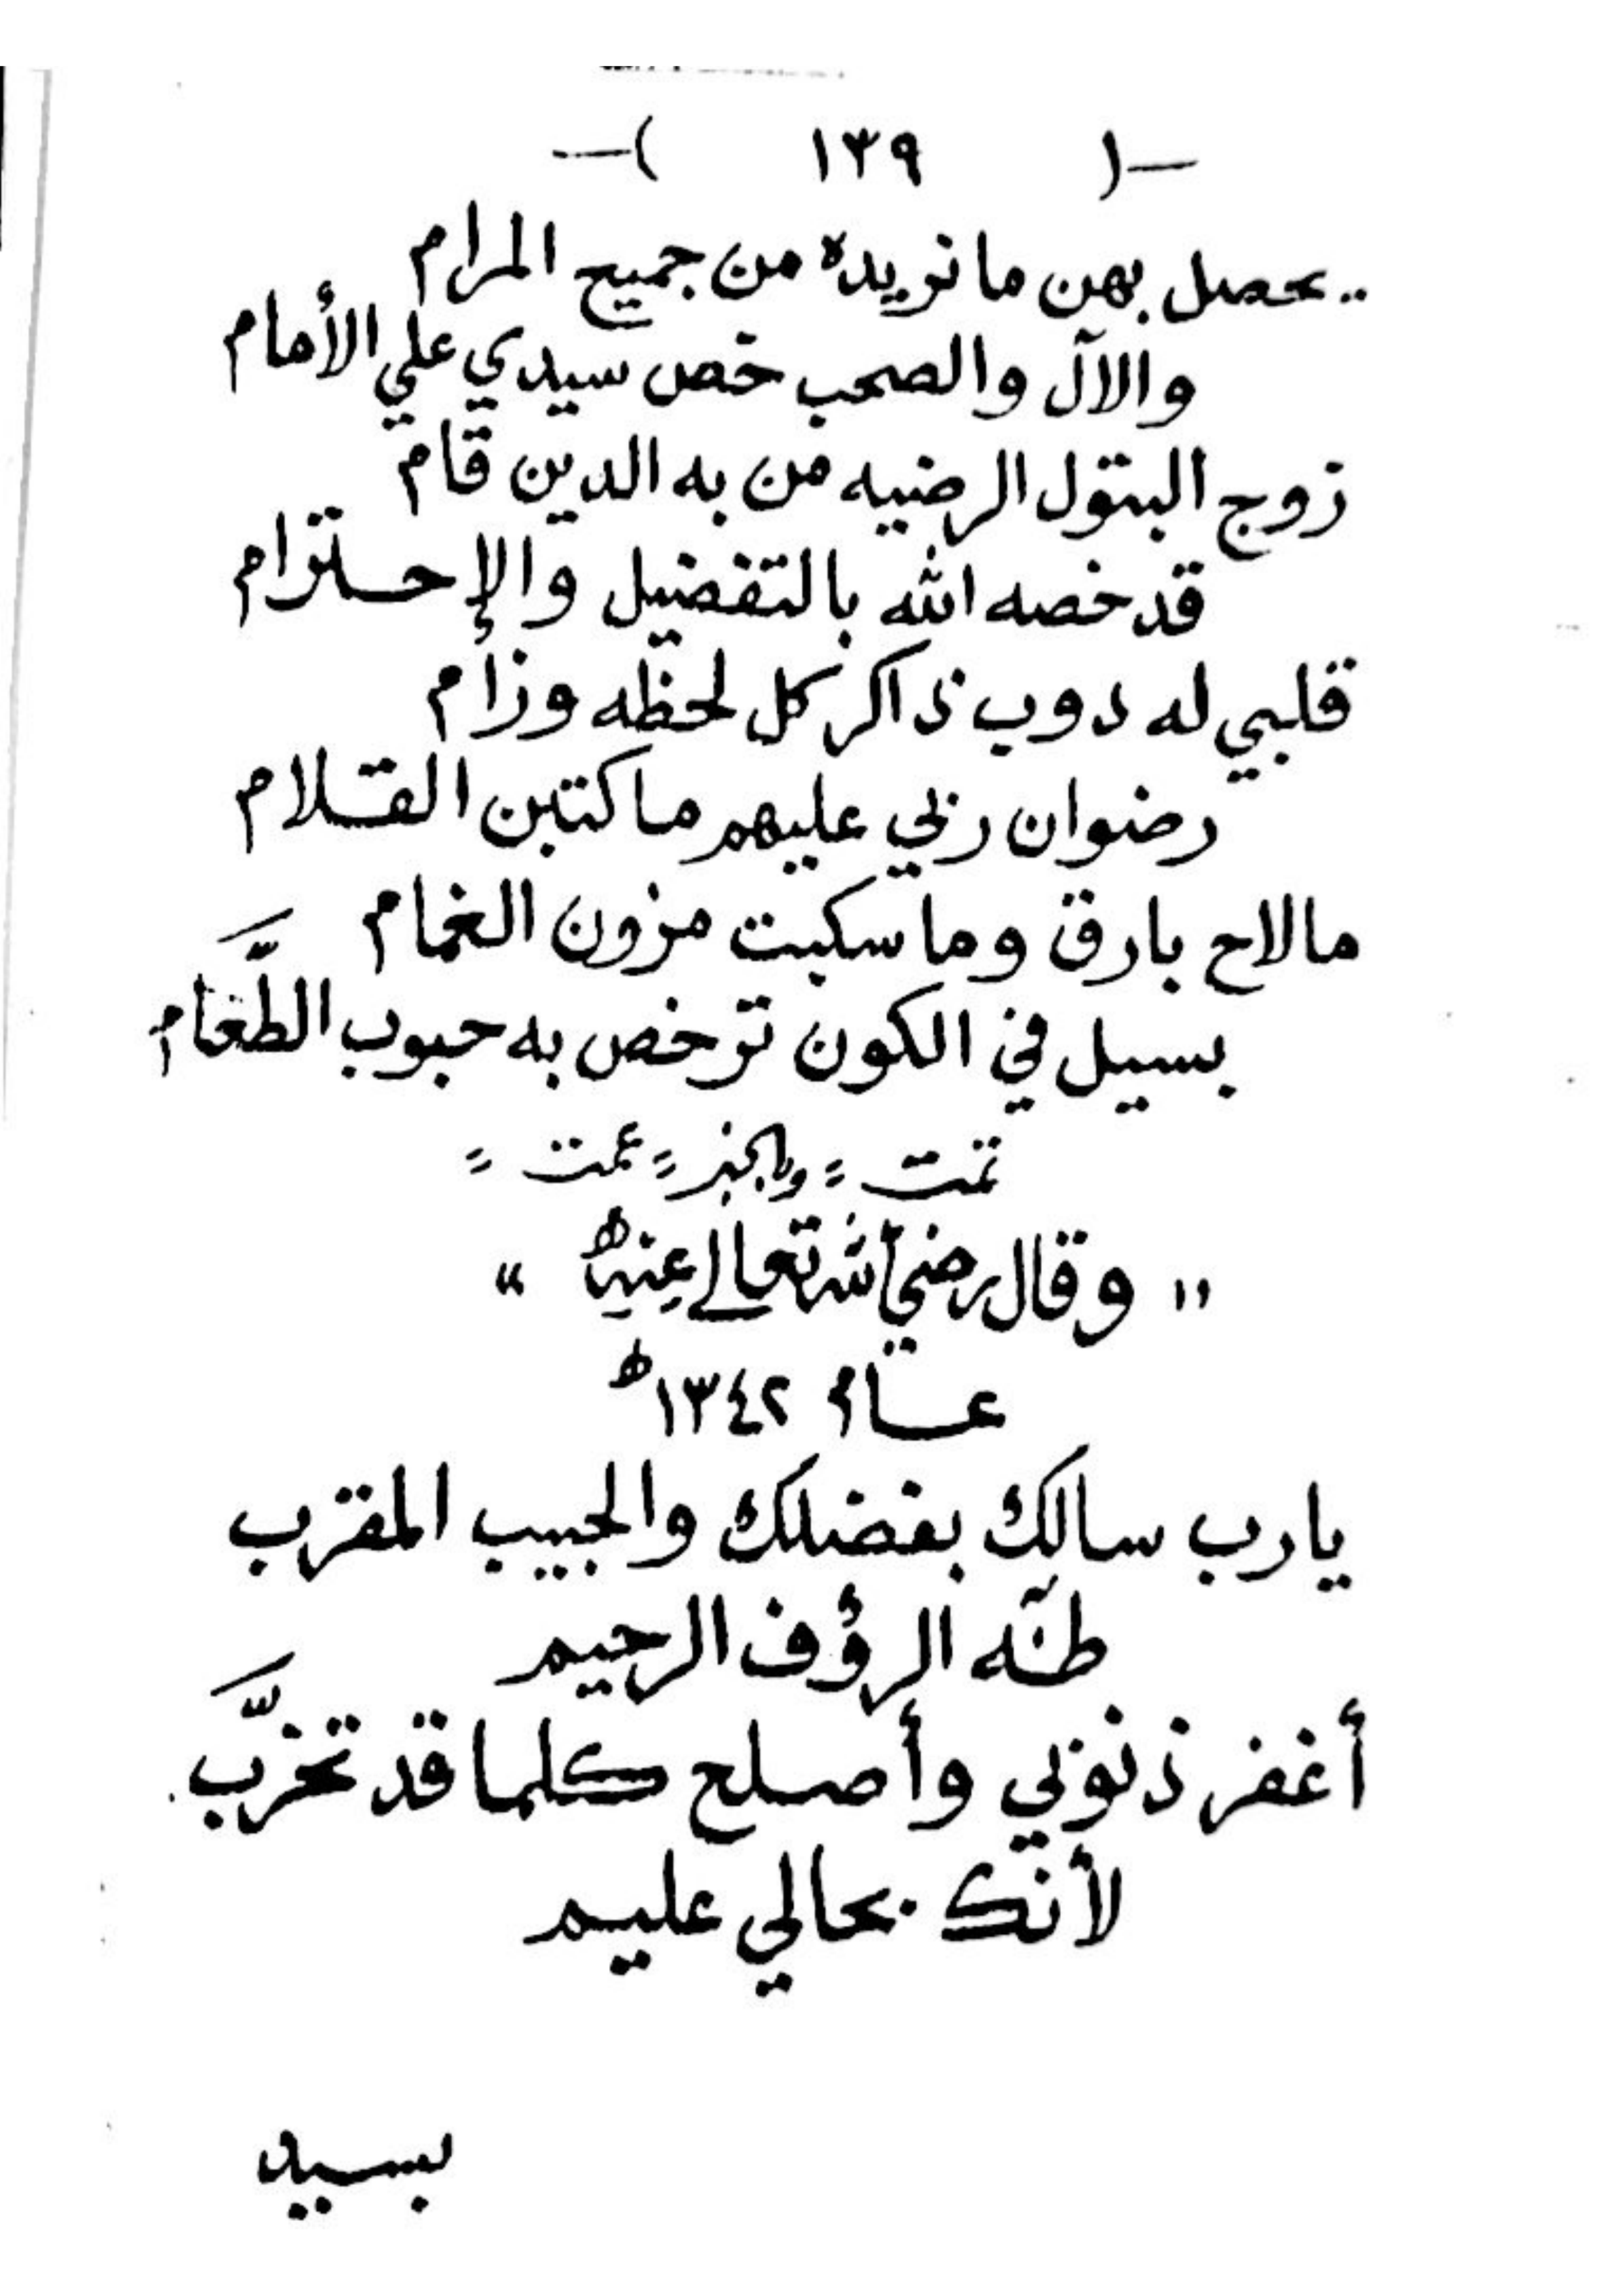 -( ١٣٩ )-
.. يحصل بهن ما نريده من جميع المرام
والآل والصحب خص سيدي علي الأمام
زوج البتول الرضيه من به الدين قام
قد خصه الله بالتفضيل والإحترام
قلبي له دوب ذاكر كل لحظه وزام
رضوان ربي عليهم ما كتبن القلام
ما لاح بارق وما سكبت مزون الغمام
بسيل في الكون ترخص به حبوب الطَّعام
تمت = وبالخير = عمت =
" وقال رضي الله تعالى عنه "
عام ١٣٤٢ ه
يارب سالك بفضلك والحبيب المقرب
طه الرؤف الرحيم
أغفر ذنوبي وأصلح كلما قد تخرَّب
لأنك بحالي عليم
بسيد